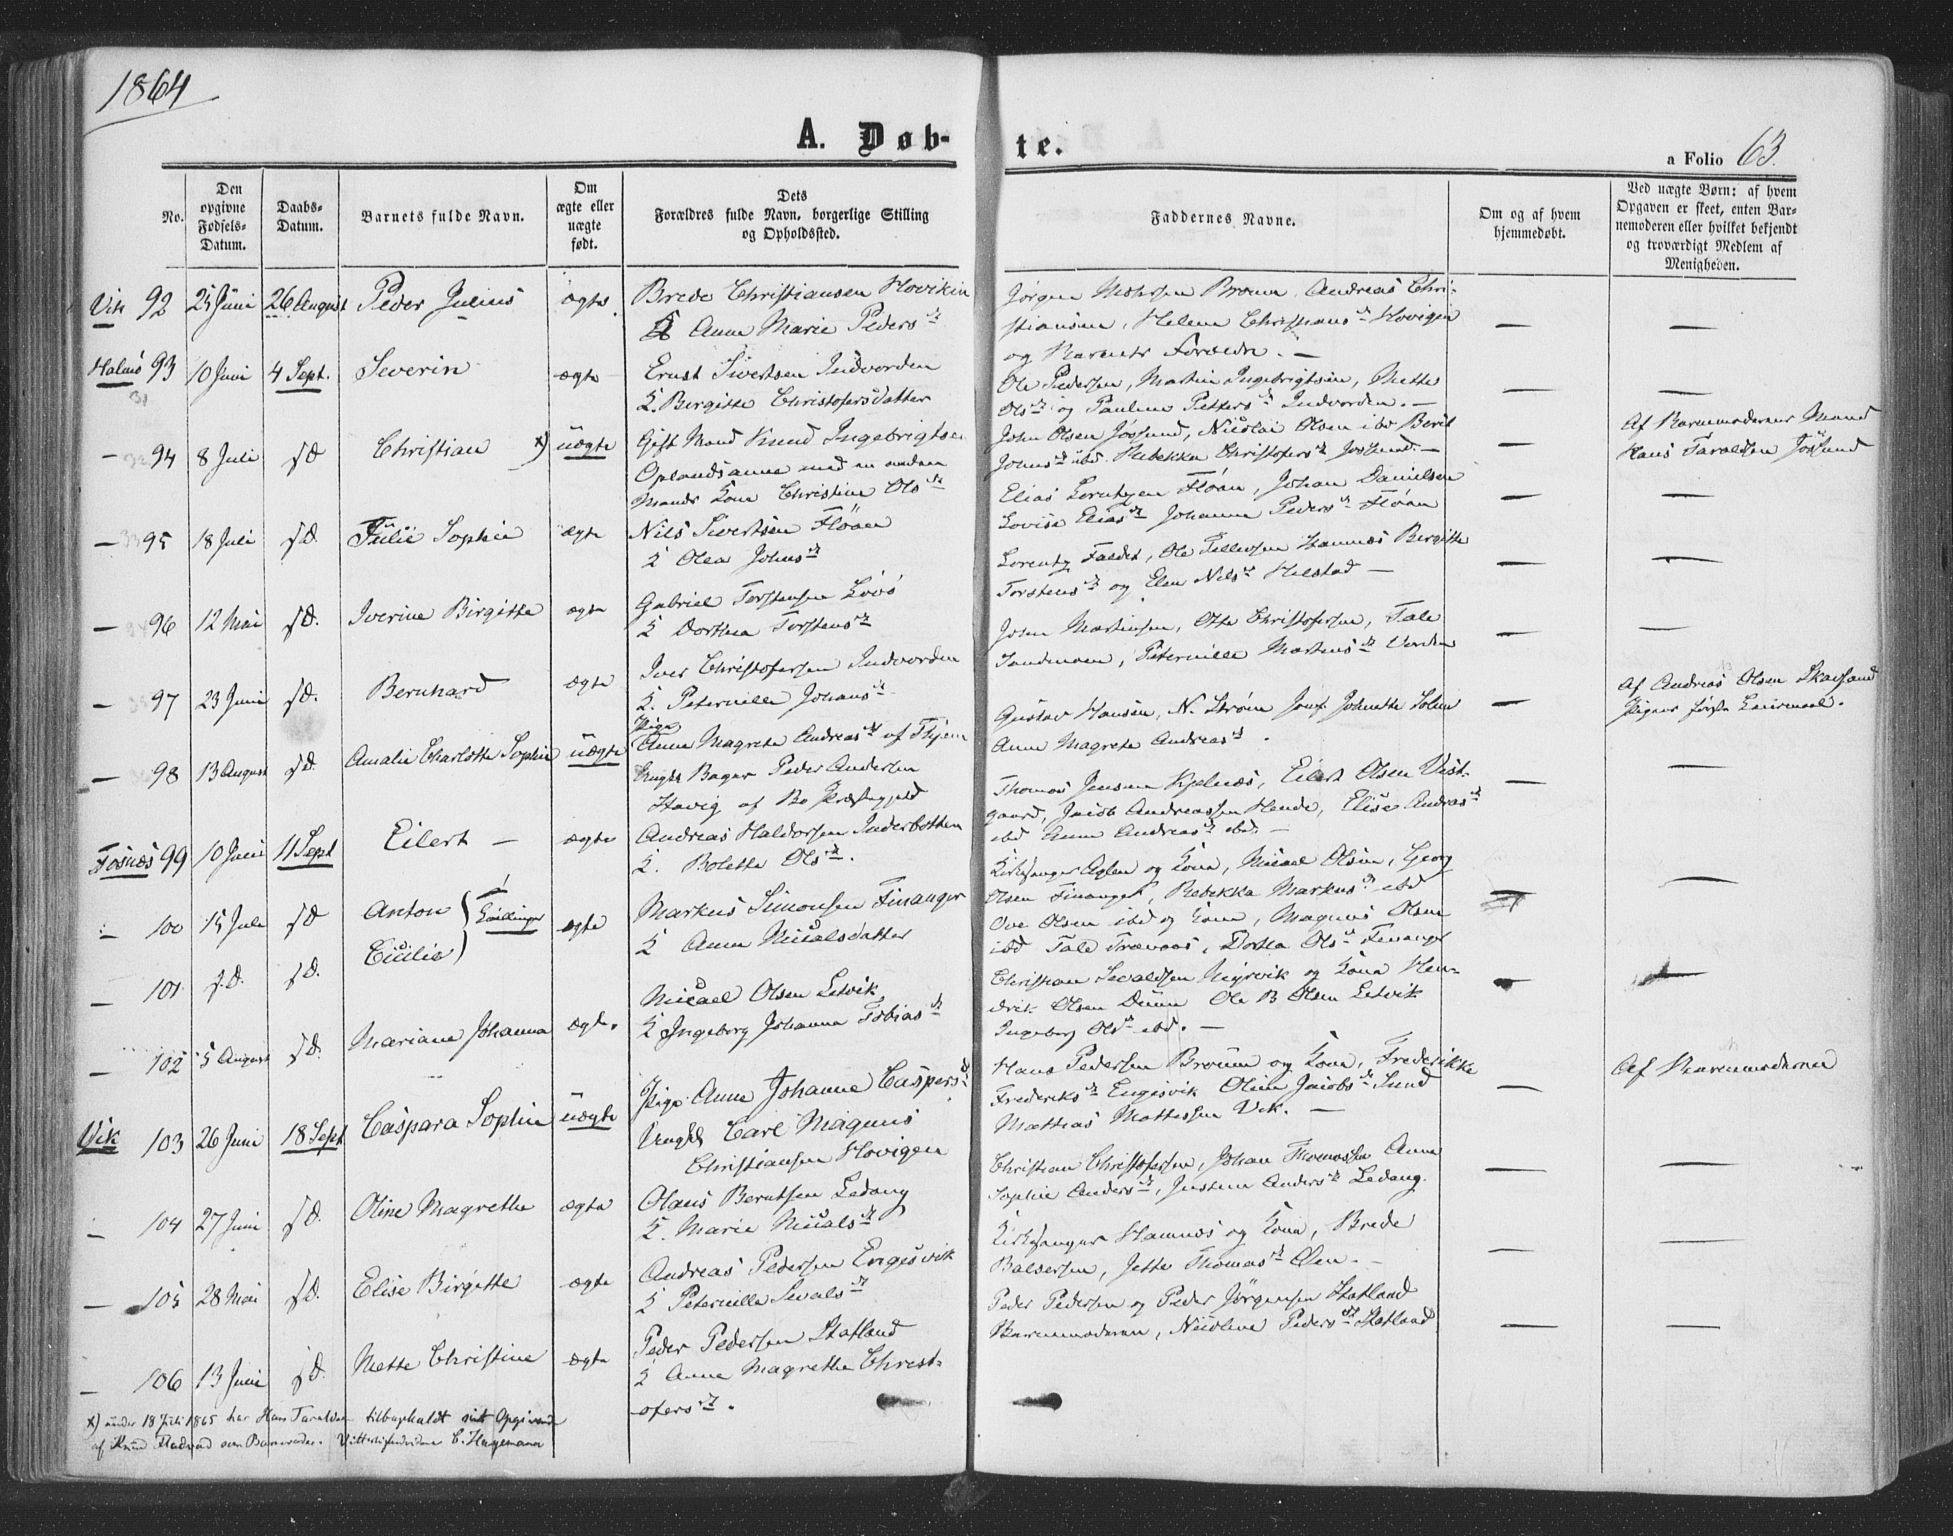 1864
A. Døb-
te.
a Folio 63.
No.
Den opgivne Fødsels-Datum.
Daabs-Datum.
Barnets fulde Navn.
Om ægte eller uægte født.
Dets Forældres fulde Navn, borgerlige Stilling og Opholdssted.
Faddernes Navne.
Om og af hvem hjemmedøbt.
Ved uægte Børn: af hvem Opgaven er skeet, enten Barnemoderen eller hvilket bekjendt og troværdigt Medlem af Menigheden.
Vik 92 25 Juni 26 August Peder Julius ægte
Brede Christiansen Hovikin
K Anne Marie Peders dr
Jörgen Andreas Chri-
stiansen, Helene Christians dr Hovigen
og Barnets Forældre. —
Halnös 93 10 Juni 4 Sept. Severin ægte
Ernst Sivertsen Indvorden
K. Birgitte Christofersdatter
Ole Pedersen, Martin Ingebrigtsen, Mette
Ols dr og Pauline Petters dr Indvorden. —
— 94 8 Juli s.D. Christian x) uægte
Gift Mand Knud Ingebrigtsen
Oplandsanne med en anden
Mands Kone Christine Ols dr
John Olsen Jössund, Nicolai Olsen ibd Berit
Johns dr ibd. Rebekka Christofers dr Jössund. —
Af Barnemoderens Mand
Hans Taraldsen Jössund
— 95 18 Juli s.D. Julie Sophie ægte
Nils Sivertsen Flöan
K Olea Johns dr
Elias Lorntzen Flöan, Johan Danielsen
Lovise Elias dr Johanna Peders dr Flöan
— 96 12 Mai s.D. Iverine Birgitte ægte
Gabriel Torstensen Lövö
K Dorthea Torstens dr
Lorentz Faldet, Ole Tellefsen Hamnes Birgitte
Torstens dr og Elen Nils dr Helstad —
— 97 23 Juni s.D. Bernhard ægte
Iver Christofersen Indvorden
K. Peternille Johans dr
John Martinsen, Otte Christofersen, Tale
Sandmoen, Peternille Martens dr Vorden
— 98 13 August s.D. Amalie Charlotte Sophie uægte
Pige
Anne Magrete Andreas dr af
Ungkl Bager Peder Andersen
Havig af Bo Præstegjeld
Gustav Hansen, N. Ström Jomf Johnette Solem
Anne Magrete Andreas dr.
Af Andreas Olsen Skarsand
Pigens förste Leiermaal.
Fosnæs 99 10 Juni 11 Sept Eilert — ægte
Andreas Haldorsen Inderbotten
K. Bolette Ols dr.
Thomas Jensen Kjelnæs, Eilert Olsen Vest-
gaard, Jacob Andreassen Hende, Elise Andreas dr
ibd Anne Andreas dr ibd. —
— 100 15 Juli s.D. Anton
Tvillinger
ægte
Markus Simonsen Finanger
K Anne Nicalsdatter
Kirksanger Aglen og Kone, Micael Olsen, Georg
Olsen Finanger, Rebekka Markus dr ibd
— 101 s.D. s.D. Cicilie
Ove Olsen ibd og Kone, Magnus Olsen
ibd Tale Trævaas, Dortea Ols dr Finanger
— 102 5 August s.D. Mariane Johanna ægte.
Micael Olsen Letvik
K Ingeborg Johanna Tobias dr
Christian Sevaldsen Myrvik og Kone Hen-
drik Olsen Duun Ole B Olsen Letvik
Ingeborg Ols dr ibd. —
Vik 103 26 Juni 18 Sept Caspara Sophie uægte
Pige Anne Johanne Caspers dr
Ungkl Carl Magnus
Christiansen Hovigen
Hans Pedersen Brouun og Kone, Frederikke
Frederiks dr Engesvik Oline Jacobs dr Sund
Mathias Mattissen Vik. —
Af Barnemoderen
— 104 27 Juni s.D. Oline Magrethe ægte
Olaus Berntsen Ledang
K. Marie Nicals dr
Christian Christofersen, Johan Thomassen Anne
Sophie Anders dr, Justine Anders dr Ledang.
— 105 28 Mai s.D. Elise Birgitte ægte
Andreas Pedersen Engesvik
K Peternille Sevals dr
Kirksanger Hamnes og Kone, Brede
Balsersen, Jette Thomas dr Öen. —
— 106 13 Juni s.D. Mette Christine ægte
Peder Pedersen Statland
K Anne Magrethe Christ-
ofers dr.
Peder Pedersen og Peder Jörgensen Statland
Barnemoderen, Nicoline Peders dr Statland
x) under 18 Juli 1865 har Hans Taraldsen tilbagekaldt sit Opgivende
af Knud Fladvad som Barnefader. Vitterlighedsvidne C. Hagemann